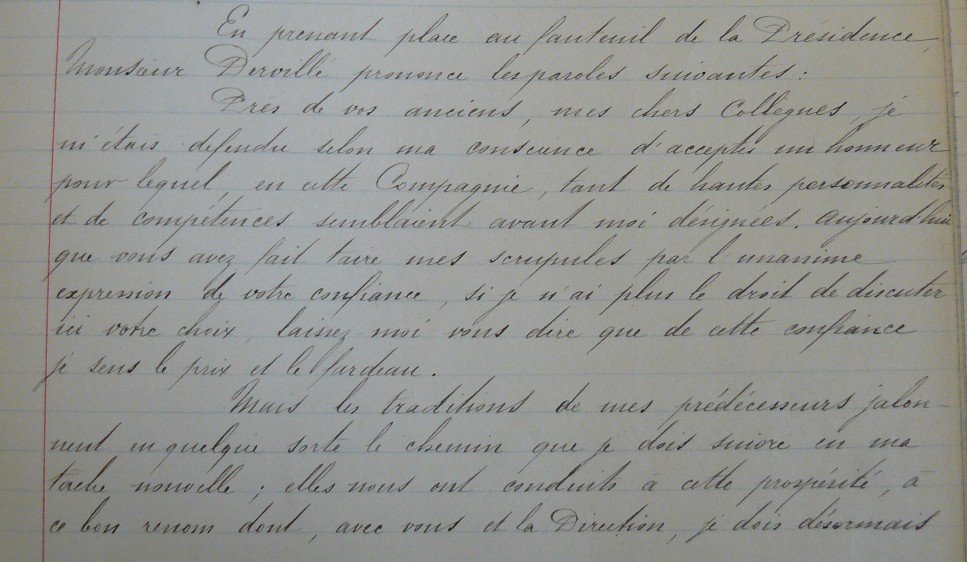 En prenant place au fauteuil de la Présidence,
Monsieur Dervillé prononce les paroles suivantes :
Près de vos anciens, mes chers Collègues, je
m'étais défendu selon ma conscience d'accepter un honneur
pour lequel, en cette Compagnie, tant de hautes personnalités
et de compétences semblaient avant moi désignées. Aujourd'hui
que vous avez fait taire mes scrupules par l'unanime
expression de votre confiance, si je n'ai plus le droit de discuter
ici votre choix, laissez moi vous dire que de cette confiance
je sens le prix et le fardeau.
Mais les traditions de mes prédécesseurs jalon-
nent en quelque sorte le chemin que je dois suivre en ma
tâche nouvelle ; elles nous ont conduits à cette prospérité, à
ce bon renom dont, avec vous et la Direction, je dois désormais